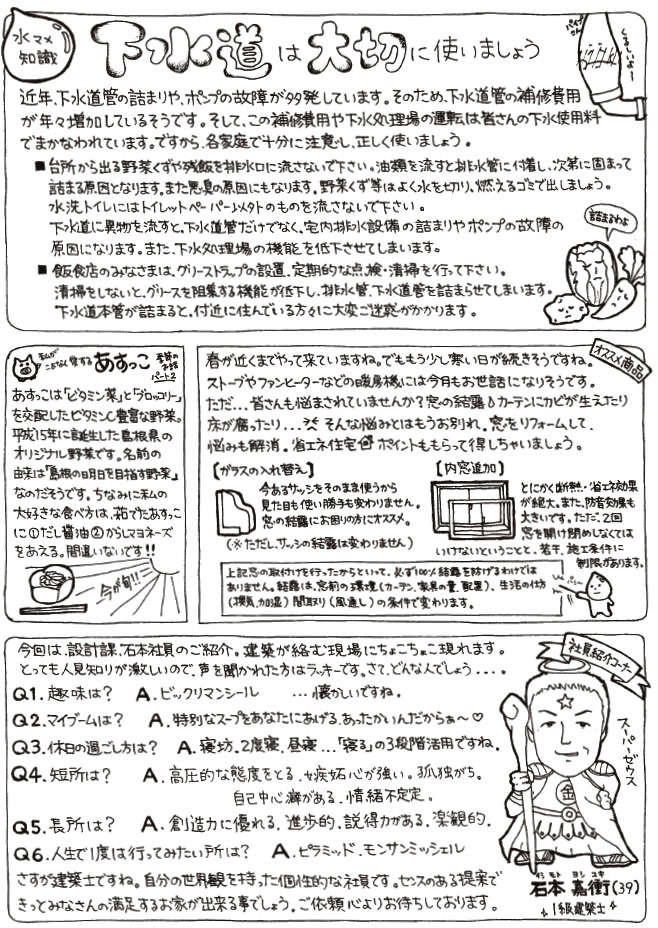 水マメ
知識
下水道は大切に使いましょう
パイプさん
くるしいなー
近年、下水道管の詰まりや、ポンプの故障が多発しています。そのため、下水道管の補修費用
が年々増加しているそうです。そして、この補修費用や下水処理場の運転は皆さんの下水使用料
でまかなわれています。ですから、各家庭で十分に注意し、正しく使いましょう。
■台所から出る野菜くずや残飯を排水口に流さないで下さい。油類を流すと排水管に付着し、次第に固まって
詰まる原因となります。また悪臭の原因にもなります。野菜くず等はよく水を切り、燃えるゴミで出しましょう。
水洗トイレにはトイレットペーパー以外のものを流さないで下さい。
下水道に異物を流すと、下水道管だけでなく、宅内排水設備の詰まりやポンプの故障の
原因になります。また、下水処理場の機能を低下させてしまいます。
詰まるわよ
■飲食店のみなさまは、グリーストラップの設置、定期的な点検・清掃を行って下さい。
清掃をしないと、グリースを阻集する機能が低下し、排水管、下水道管を詰まらせてしまいます。
下水道本管が詰まると、付近に住んでいる方々に大変ご迷惑がかかります。
私が
こよなく愛する あすっこ
季節の
お話
パート2
あすっこは「ビタミン菜」と「ブロッコリー」
を交配したビタミンC豊富な野菜。
平成15年に誕生した島根県の
オリジナル野菜です。名前の
由来は「島根の明日を目指す野菜」
なのだそうです。ちなみに私の
大好きな食べ方は、茹でたあすっこ
に①だし醤油②からしマヨネーズ
をあえる。間違いないです!!
今が旬!!
オススメ商品
春が近くまでやって来ていますね。でももう少し寒い日が続きそうですね。
ストーブやファンヒーターなどの暖房機には今月もお世話になりそうです。
ただ…皆さんも悩まされていませんか?窓の結露もカーテンにカビが生えたり
床が腐ったり…そんな悩みとはもうお別れ。窓をリフォームして、
悩みも解消。省エネ住宅ポイントももらって得しちゃいましょう。
【ガラスの入れ替え】
今あるサッシをそのまま使うから
見た目も使い勝手も変わりません。
窓の結露にお困りの方にオススメ。
(※ただし、サッシの結露は変わりません)
【内窓追加】
とにかく断熱・省エネ効果
が絶大。また、防音効果も
大きいです。ただ、2回
窓を開け閉めしなくては
いけないということと、若干、施工条件に
制限があります。
上記窓の取付けを行ったからといって、必ず100%結露を防げるわけでは
ありません。結露は、窓前の環境(カーテン、家具の量、配置)、生活の仕方
(換気、加湿)間取り(風通し)の条件で変わります。
社員紹介コーナー
今回は、設計課、石本社員のご紹介。建築が絡む現場にちょこちょこ現れます。
とっても人見知りが激しいので、声を聞かれた方はラッキーです。さて、どんな人でしょう....
Q1. 趣味は? A. ビックリマンシール …懐かしいですね。
Q2. マイブームは? A. 特別なスープをあなたにあげる、あったかいんだからぁ〜♡
Q3. 休日の過ごし方は? A. 寝坊、2度寝、昼寝…「寝る」の3段階活用ですね。
Q4. 短所は? A. 高圧的な態度をとる、嫉妬心が強い。孤独がち。
自己中心癖がある、情緒不定定。
Q5. 長所は? A. 創造力に優れる、進歩的、説得力がある、楽観的。
Q6. 人生で1度は行ってみたい所は? A. ピラミッド、モンサンミッシェル
さすが建築士ですね。自分の世界観を持った個性的な社員です。センスのある提案で
きっとみなさんの満足するお家が出来る事でしょう。ご依頼心よりお待ちしております。
スーパーゼウス
金
イシ モト ヨシ ユキ
石本 嘉衝(39)
1級建築士